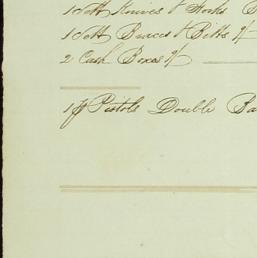 1 Sett Knives & Forks
1 Sett Braces & Bitts
2 Cash Boxes
1 pr Pistols Double Ba